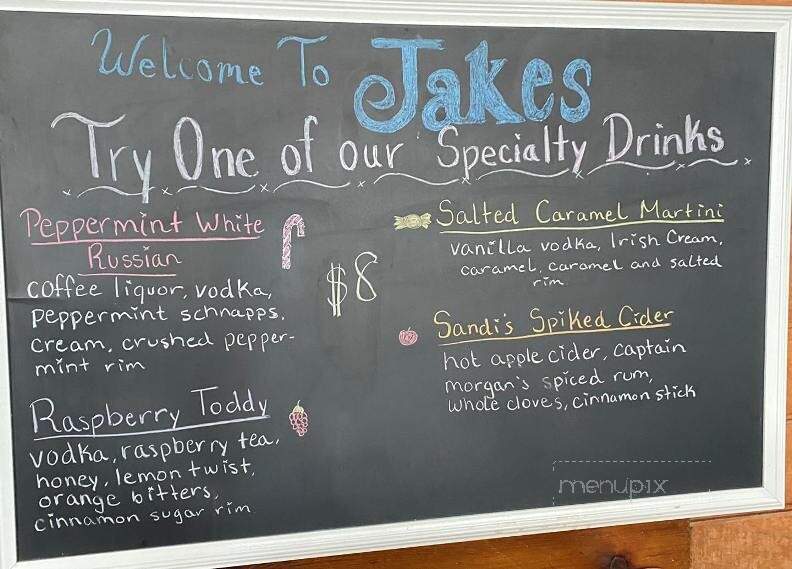 Welcome To Jakes
Try One of our Specialty Drinks
Peppermint White
Russian
coffee liquor, vodka,
peppermint schnapps,
cream, crushed pepper-
mint rim
Raspberry Toddy
vodka, raspberry tea,
honey, lemon twist,
orange bitters,
cinnamon sugar rim
$8
Salted Caramel Martini
vanilla vodka, Irish Cream,
caramel, caramel and salted
rim
Sandi's Spiked Cider
hot apple cider, captain
morgan's spiced rum,
whole cloves, cinnamon stick
menupix